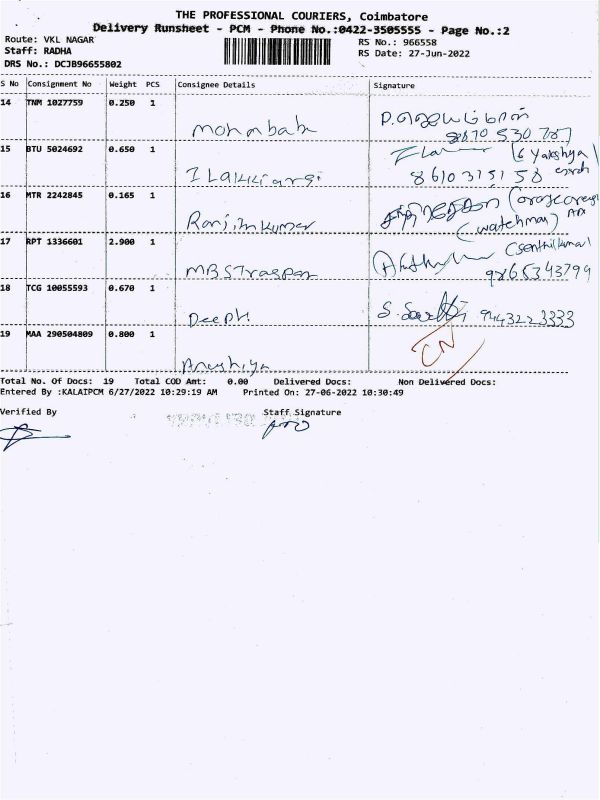 THE PROFESSIONAL COURIERS, Coimbatore
Delivery Runsheet - PCM - Phone No.:0422-3505555 - Page No.:2
Route: VKL NAGAR
RS No.: 966558
Staff: RADHA
RS Date: 27-Jun-2022
DRS No.: DCJB96655802
S No Consignment No Weight PCS Consignee Details Signature
14 TNM 1027759 0.250 1
Mohanbabu
98870 530 787
15 BTU 5024692 0.650 1
(6 Yakshya)
Ilakkiarasi 8610315158
16 MTR 2242845 0.165 1
Ranjithkumar (watchman)
17 RPT 1336601 2.900 1
(Senthilkumar)
MBSTraspor 9865343799
18 TCG 10055593 0.670 1
Deepti S. 9443223333
19 MAA 290504809 0.800 1
CN
Total No. Of Docs: 19 Total COD Amt: 0.00 Delivered Docs: Non Delivered Docs:
Entered By :KALAIPCM 6/27/2022 10:29:19 AM Printed On: 27-06-2022 10:30:49
Verified By Staff Signature